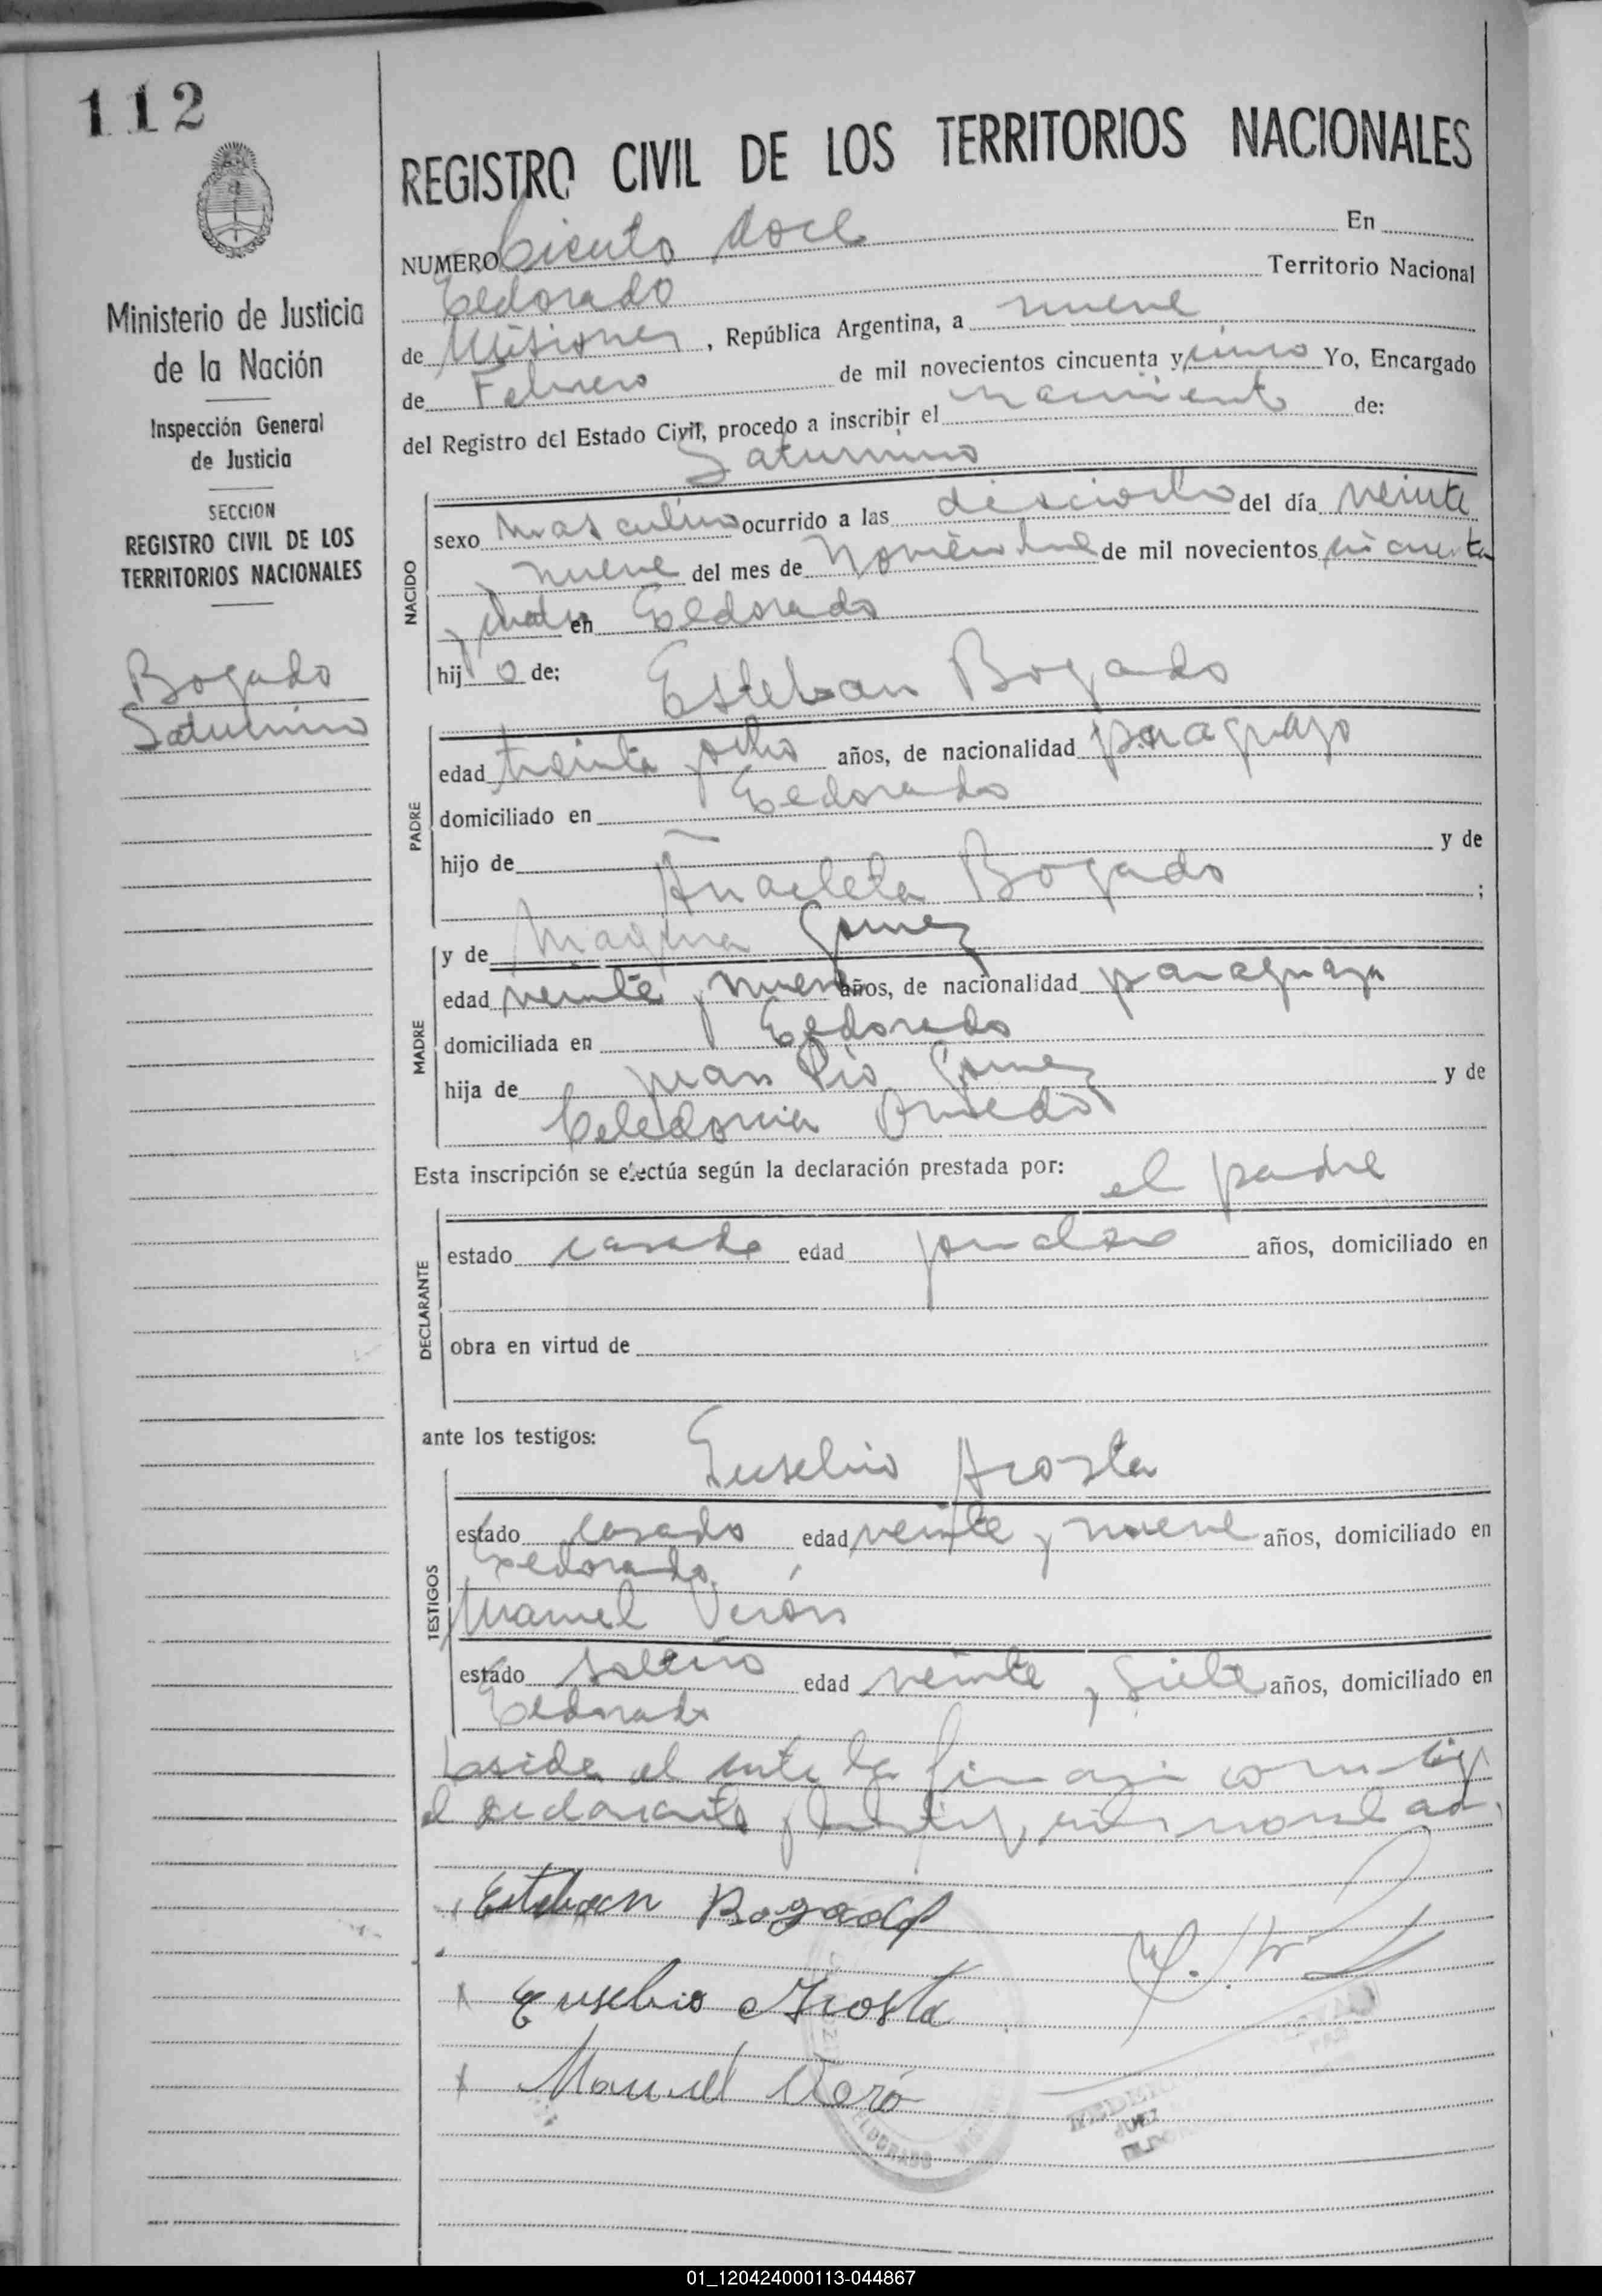 112
Ministerio de Justicia
de la Nación
Inspección General
de Justicia
SECCION
REGISTRO CIVIL DE LOS
TERRITORIOS NACIONALES
Bogado
Saturnino
REGISTRO CIVIL DE LOS TERRITORIOS NACIONALES
NUMERO Ciento doce En
Eldorado Territorio Nacional
de Misiones, República Argentina, a nueve
de Febrero de mil novecientos cincuenta y cinco Yo, Encargado
del Registro del Estado Civil, procedo a inscribir el nacimiento de:
Saturnino
NACIDO
sexo masculino ocurrido a las dieciocho del día veinte
y nueve del mes de Noviembre de mil novecientos cincuenta
y cuatro en Eldorado
hijo de: Esteban Bogado
PADRE
edad treinta y ocho años, de nacionalidad paraguayo
domiciliado en Eldorado
hijo de y de
Anacleta Bogado ;
y de Gomez
MADRE
edad veinte y nueve años, de nacionalidad paraguaya
domiciliada en Eldorado
hija de Juan Pio Gomez y de
Celedonia
Esta inscripción se efectúa según la declaración prestada por: el padre
DECLARANTE
estado casado edad años, domiciliado en
obra en virtud de
ante los testigos: Eusebio Acosta
TESTIGOS
estado casado edad veinte y nueve años, domiciliado en
Eldorado
Manuel Verón
estado soltero edad veinte y siete años, domiciliado en
Eldorado
el declarante
Esteban Bogado
Eusebio Acosta
Manuel Veró
ELDORADO
JUEZ
01_120424000113-044867